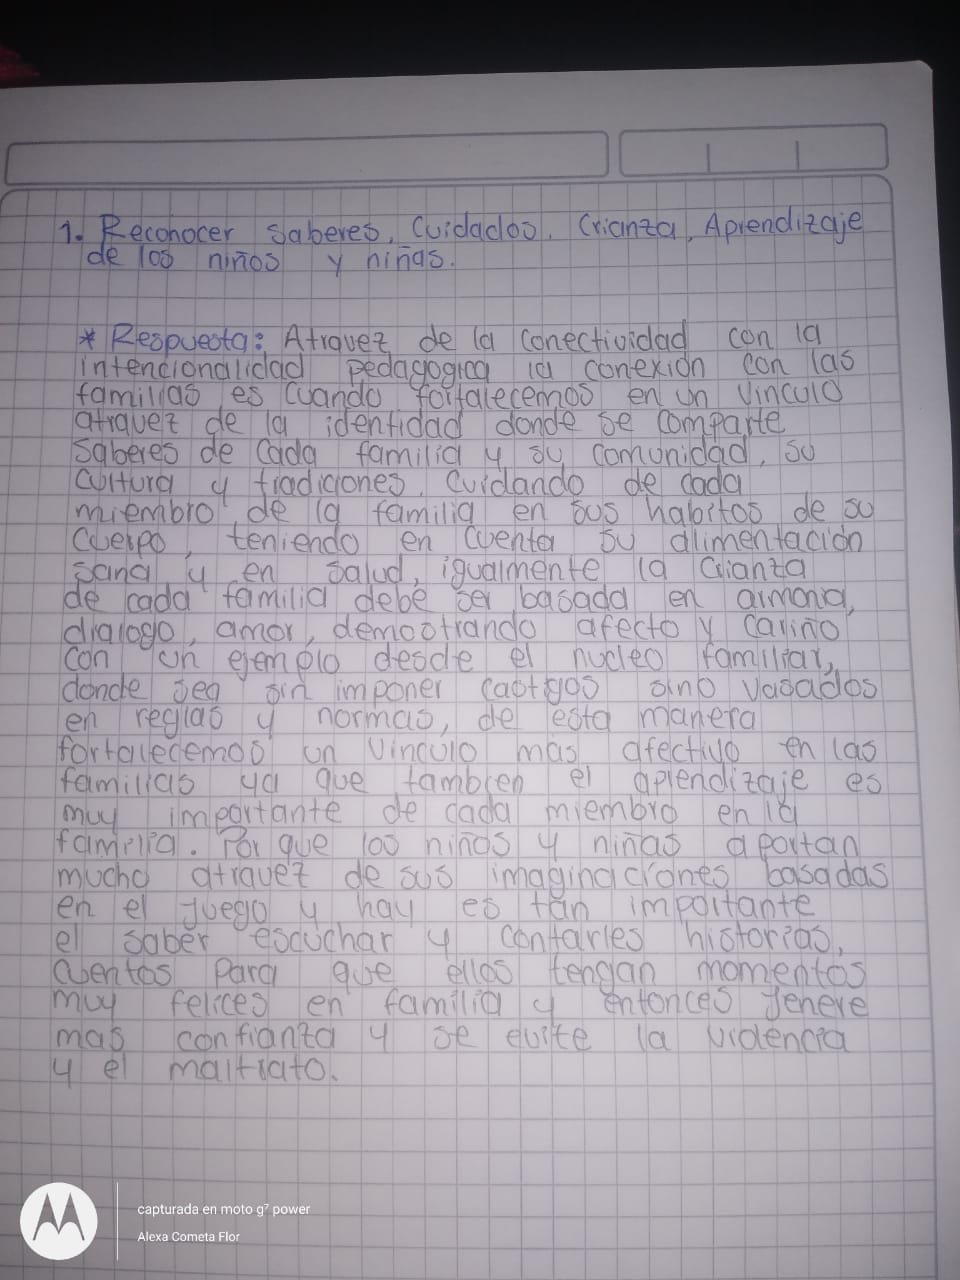 1. Reconocer saberes, Cuidados, Crianza, Aprendizaje
de los niños y niñas.
* Respuesta: Atravez de la conectividad con la
intencionalidad pedagogica la conexion con las
familias es cuando fortalecemos en un vinculo
atravez de la identidad donde se comparte
saberes de cada familia y su comunidad, su
cultura y tradiciones, cuidando de cada
miembro de la familia en sus habitos de su
cuerpo, teniendo en cuenta su alimentación
sana y en salud, igualmente la crianza
de cada familia debe ser basada en armonia,
dialogo, amor, demostrando afecto y cariño
con un ejemplo desde el nucleo familiar,
donde sea sin imponer castigos sino vasados
en reglas y normas, de esta manera
fortalecemos un vinculo mas afectivo en las
familias ya que tambien el aprendizaje es
muy importante de cada miembro en la
familia. Por que los niños y niñas aportan
mucho atravez de sus imaginaciones basadas
en el juego y hay es tan importante
el saber escuchar y contarles historias,
cuentos para que ellos tengan momentos
muy felices en familia y entonces jenere
mas confianza y se evite la violencia
y el maltrato.
capturada en moto g⁷ power
Alexa Cometa Flor